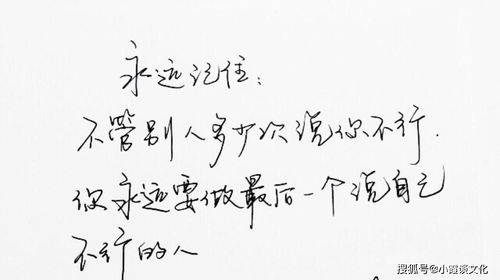 永远记住：
不管别人多少次说你不行.
你永远要做最后一个说自己
不行的人
搜狐号@小霞演文化